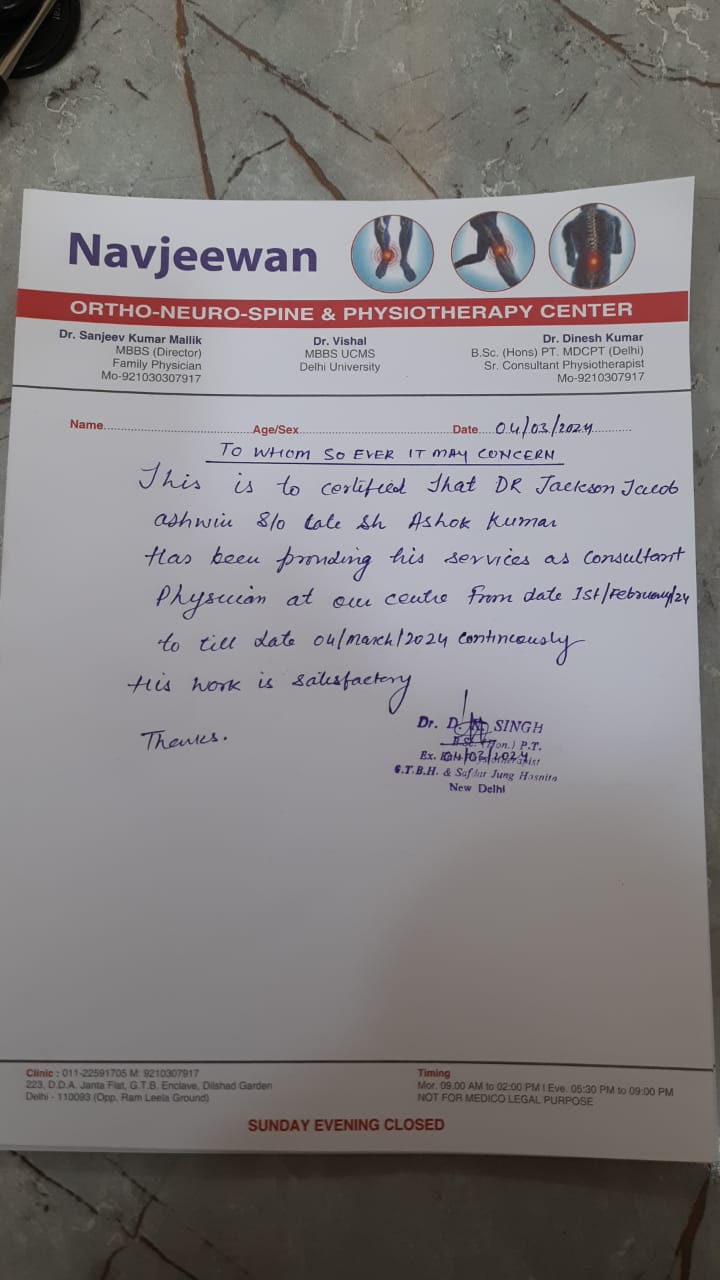 Navjeewan
ORTHO-NEURO-SPINE & PHYSIOTHERAPY CENTER
Dr. Sanjeev Kumar Mallik
MBBS (Director)
Family Physician
Mo-921030307917
Dr. Vishal
MBBS UCMS
Delhi University
Dr. Dinesh Kumar
B.Sc. (Hons) PT. MDCPT (Delhi)
Sr. Consultant Physiotherapist
Mo-9210307917
Name.......................................Age/Sex........................................Date....04/03/2024...........
TO WHOM SO EVER IT MAY CONCERN
This is to certified That DR Jackson Jacob
ashwin S/o late Sh Ashok Kumar
Has been providing his services as Consultant
Physician at our centre From date 1st/February/24
to till date 04/march/2024 Continously
His work is satisfactory
Thanks.
Dr. D. SINGH
B.Sc. (Hon.) P.T.
Ex.
04/03/2024
G.T.B.H. & Safdar Jung Hospita
New Delhi
Clinic : 011-22591705 M: 9210307917
223, D.D.A. Janta Flat, G.T.B. Enclave, Dilshad Garden
Delhi - 110093 (Opp. Ram Leela Ground)
Timing
Mor. 09.00 AM to 02:00 PM I Eve. 05:30 PM to 09:00 PM
NOT FOR MEDICO LEGAL PURPOSE
SUNDAY EVENING CLOSED